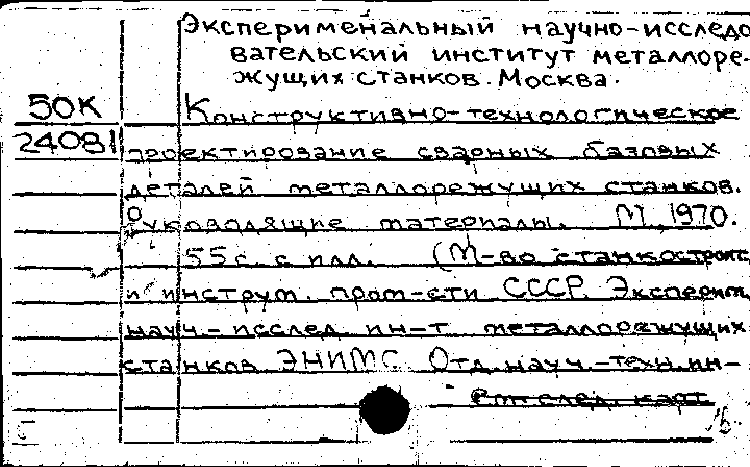 Экспериментальный научно-исследо
вательский институт металлоре-
жущих станков. Москва.
50К Конструктивно-технологическое
24081 проектирование сварных базовых
деталей металлорежущих станков.
Руководящие материалы. М., 1970.
55 с. с илл. (М-во станкостроит.
и инструм. пром-сти СССР. Эксперим.
науч.-исслед. ин-т металлорежущих
станков ЭНИМС. Отд. науч.-техн. ин-
след. карт